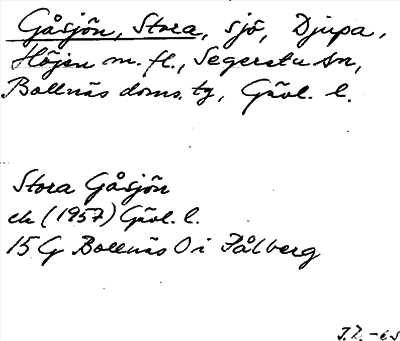 Gåsjön, Stora, sjö, Djupa,
Höjen m. fl., Segersta sn,
Bollnäs doms. tg, Gävl. l.
Stora Gåsjön
ek (1957) Gävl. l.
15 G Bollnäs O i Pålberg
J.Z. -65